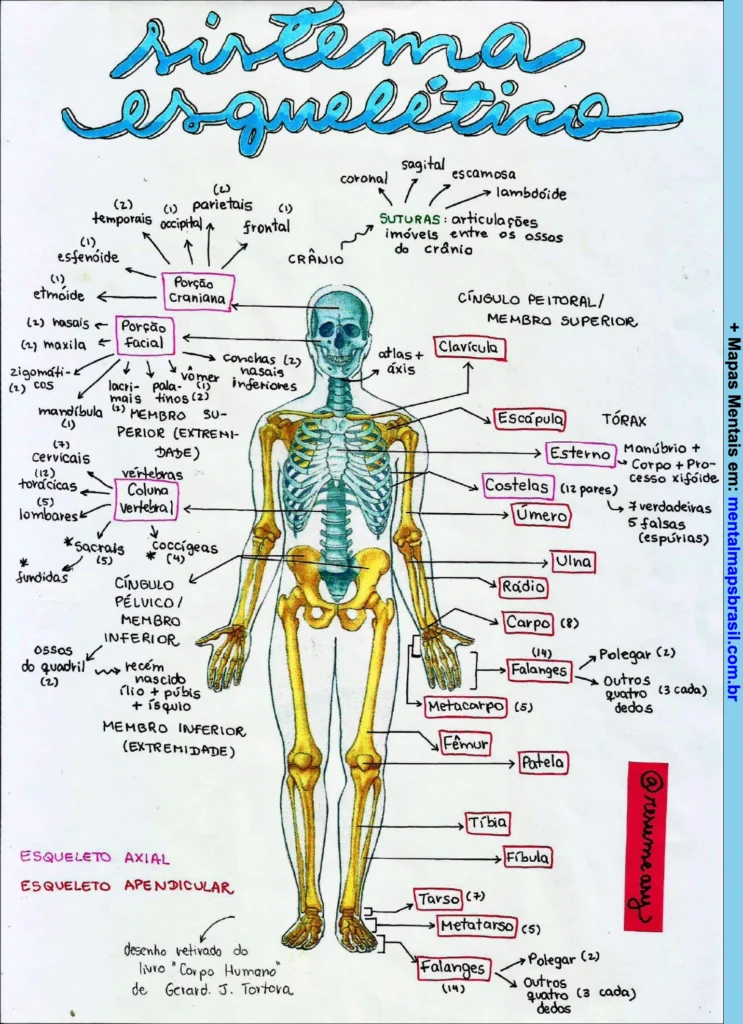 sistema
esquelético
sagital
coronal
escamosa
lambdóide
SUTURAS: articulações
imóveis entre os ossos
do crânio
CRÂNIO
(2)
temporais
(1)
occipital
(2)
parietais
(1)
frontal
(1)
esfenóide
(1)
etmóide
Porção
Craniana
(2) nasais
(2) maxila
Porção
Facial
zigomáti-
(2) cos
mandíbula
(1)
lacri-
mais
(2)
pala-
tinos (2)
vômer
(1)
conchas (2)
nasais
inferiores
atlas +
áxis
CÍNGULO PEITORAL/
MEMBRO SUPERIOR
Clavícula
Escápula
MEMBRO SU-
PERIOR (EXTREMI-
DADE)
TÓRAX
Esterno
Manúbrio +
Corpo + Pro-
cesso xifóide
Costelas (12 pares)
7 verdadeiras
5 falsas
(espúrias)
Úmero
(7)
cervicais
(12)
torácicas
(5)
lombares
vértebras
Coluna
vertebral
*sacrais
(5)
coccígeas
*(4)
*
fundidas
Ulna
Rádio
Carpo (8)
CÍNGULO
PÉLVICO/
MEMBRO
INFERIOR
ossos
do quadril
(2)
recém
nascido
ílio + púbis
+ ísquio
(14)
Falanges
Polegar (2)
Outros
quatro (3 cada)
dedos
Metacarpo (5)
MEMBRO INFERIOR
(EXTREMIDADE)
Fêmur
Patela
Tíbia
Fíbula
ESQUELETO AXIAL
ESQUELETO APENDICULAR
Tarso (7)
Metatarso (5)
Falanges
(14)
Polegar (2)
Outros
quatro (3 cada)
dedos
desenho retirado do
livro "Corpo Humano"
de Gerard. J. Tortora
@resumeany
+ Mapas Mentais em: mentalmapsbrasil.com.br